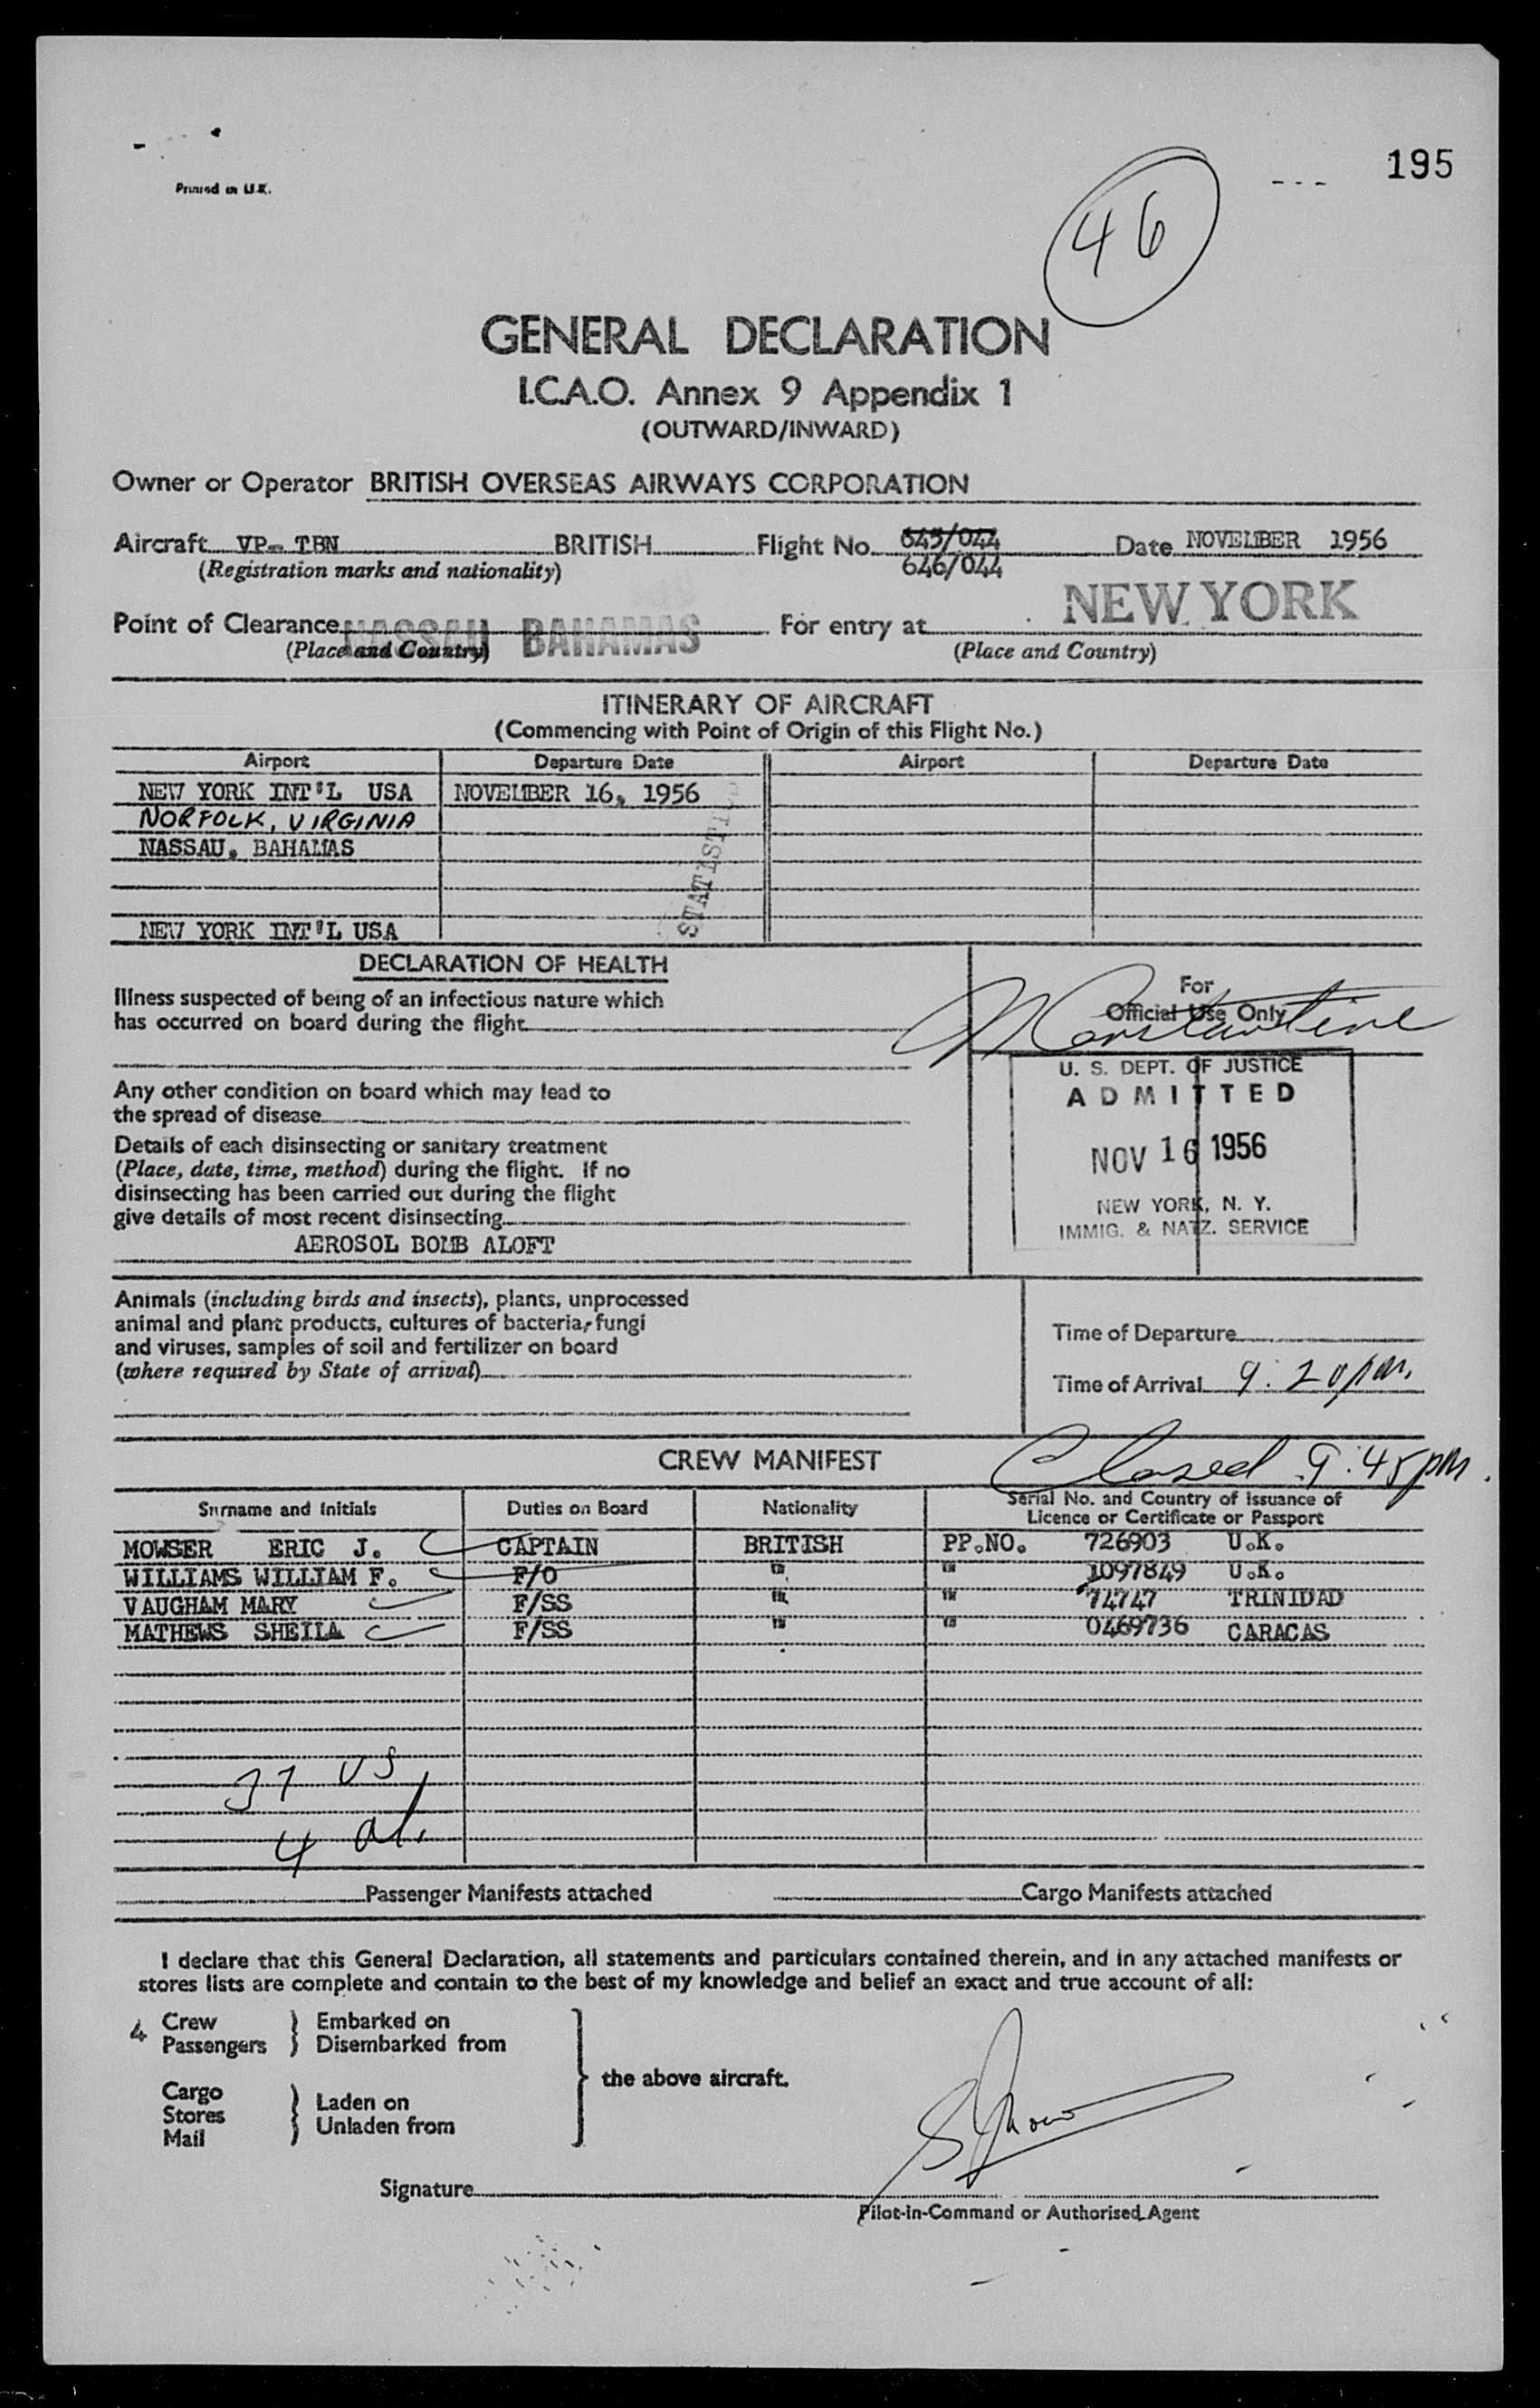 195
Printed in U.K.
46
GENERAL DECLARATION
I.C.A.O. Annex 9 Appendix 1
(OUTWARD/INWARD)
Owner or Operator BRITISH OVERSEAS AIRWAYS CORPORATION
Aircraft VP- TBN BRITISH Flight No. 645/044 Date NOVEMBER 1956
(Registration marks and nationality) 646/044
Point of Clearance NASSAU BAHAMAS For entry at NEW YORK
(Place and Country) (Place and Country)
ITINERARY OF AIRCRAFT
(Commencing with Point of Origin of this Flight No.)
Airport Departure Date Airport Departure Date
NEW YORK INT'L USA NOVEMBER 16, 1956
NORFOLK, VIRGINIA
NASSAU, BAHAMAS
NEW YORK INT'L USA
DECLARATION OF HEALTH
Illness suspected of being of an infectious nature which
has occurred on board during the flight
Any other condition on board which may lead to
the spread of disease
Details of each disinsecting or sanitary treatment
(Place, date, time, method) during the flight. If no
disinsecting has been carried out during the flight
give details of most recent disinsecting
AEROSOL BOMB ALOFT
For
Official Use Only
Constantine
U. S. DEPT. OF JUSTICE
ADMITTED
NOV 16 1956
NEW YORK, N. Y.
IMMIG. & NATZ. SERVICE
Animals (including birds and insects), plants, unprocessed
animal and plant products, cultures of bacteria, fungi
and viruses, samples of soil and fertilizer on board
(where required by State of arrival)
Time of Departure
Time of Arrival 9:20 pm.
CREW MANIFEST
Closed 9:45 pm.
Surname and Initials Duties on Board Nationality Serial No. and Country of Issuance of
Licence or Certificate or Passport
MOWSER ERIC J. CAPTAIN BRITISH PP.NO. 726903 U.K.
WILLIAMS WILLIAM F. F/O " " 1097849 U.K.
VAUGHAM MARY F/SS " " 74747 TRINIDAD
MATHEWS SHEILA F/SS " " 0469736 CARACAS
37 US
4 al.
Passenger Manifests attached Cargo Manifests attached
I declare that this General Declaration, all statements and particulars contained therein, and in any attached manifests or
stores lists are complete and contain to the best of my knowledge and belief an exact and true account of all:
4 Crew Embarked on
Passengers Disembarked from
the above aircraft.
Cargo
Stores
Mail
Laden on
Unladen from
Signature
Pilot-in-Command or Authorised Agent